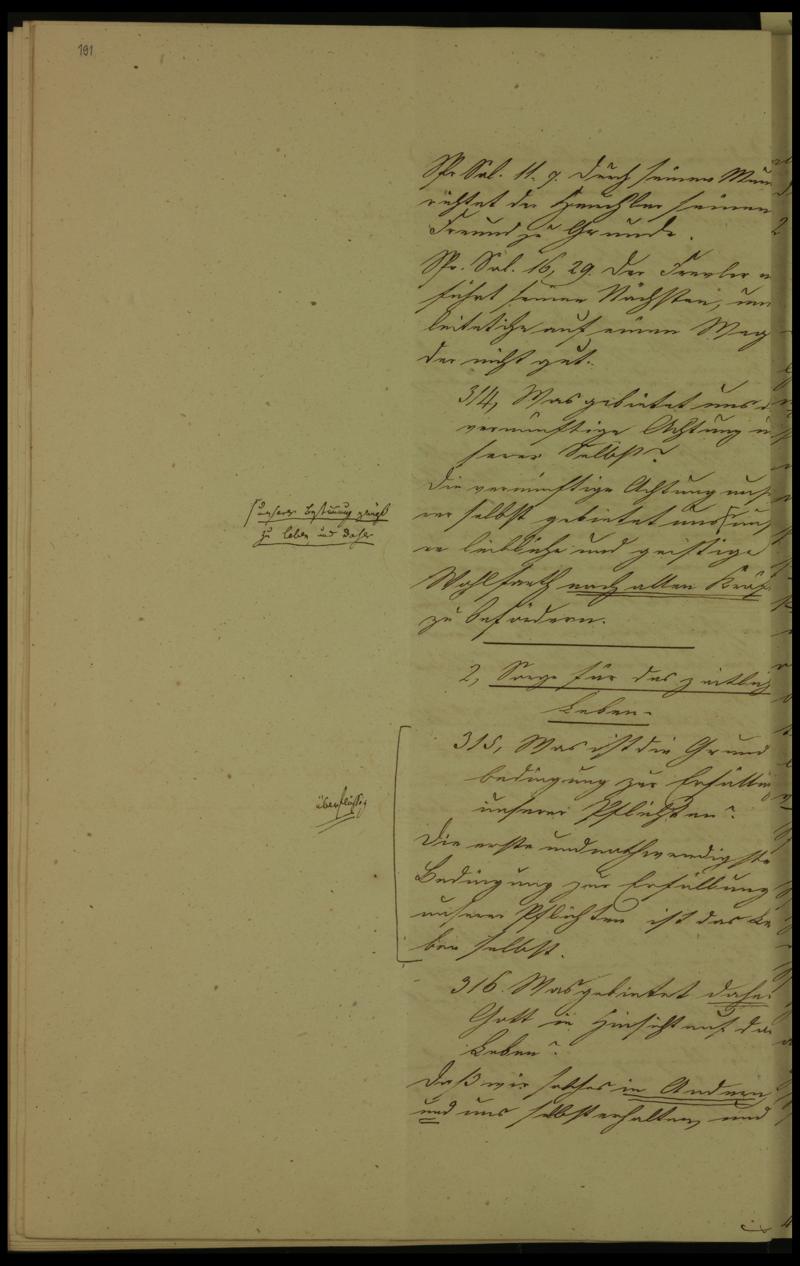 191
Spr. Sal. 11. 9. Durch seinen Mun
richtet der Heuchler seinen
Freund zu Grunde.
Spr. Sal. 16, 29. Der Frevler v
führt seinen Nächsten, und
leitet ihn auf einen Weg
der nicht gut.
314, Was gebietet uns d
vernünftige Achtung u
serer Selbst?
Die vernünftige Achtung uns
rer selbst gebietet uns, uns
re leibliche und geistige
Wohlfarth nach allen Kräf
zu befördern.
unserer Bestimmung gemäß
zu leben und daher
2, Sorge für das zeitlich
Leben.
315, Was ist die Grund
bedingung zur Erfüllu
unserer Pflichten?
Die erste und nothwendigste
Bedingung zur Erfüllung
unserer Pflichten ist das Le
ben selbst.
überflüssig
316. Was gebietet daher
Gott in Hinsicht auf das
Leben?
Daß wir solches in Andern
und uns selbst erhalten, und